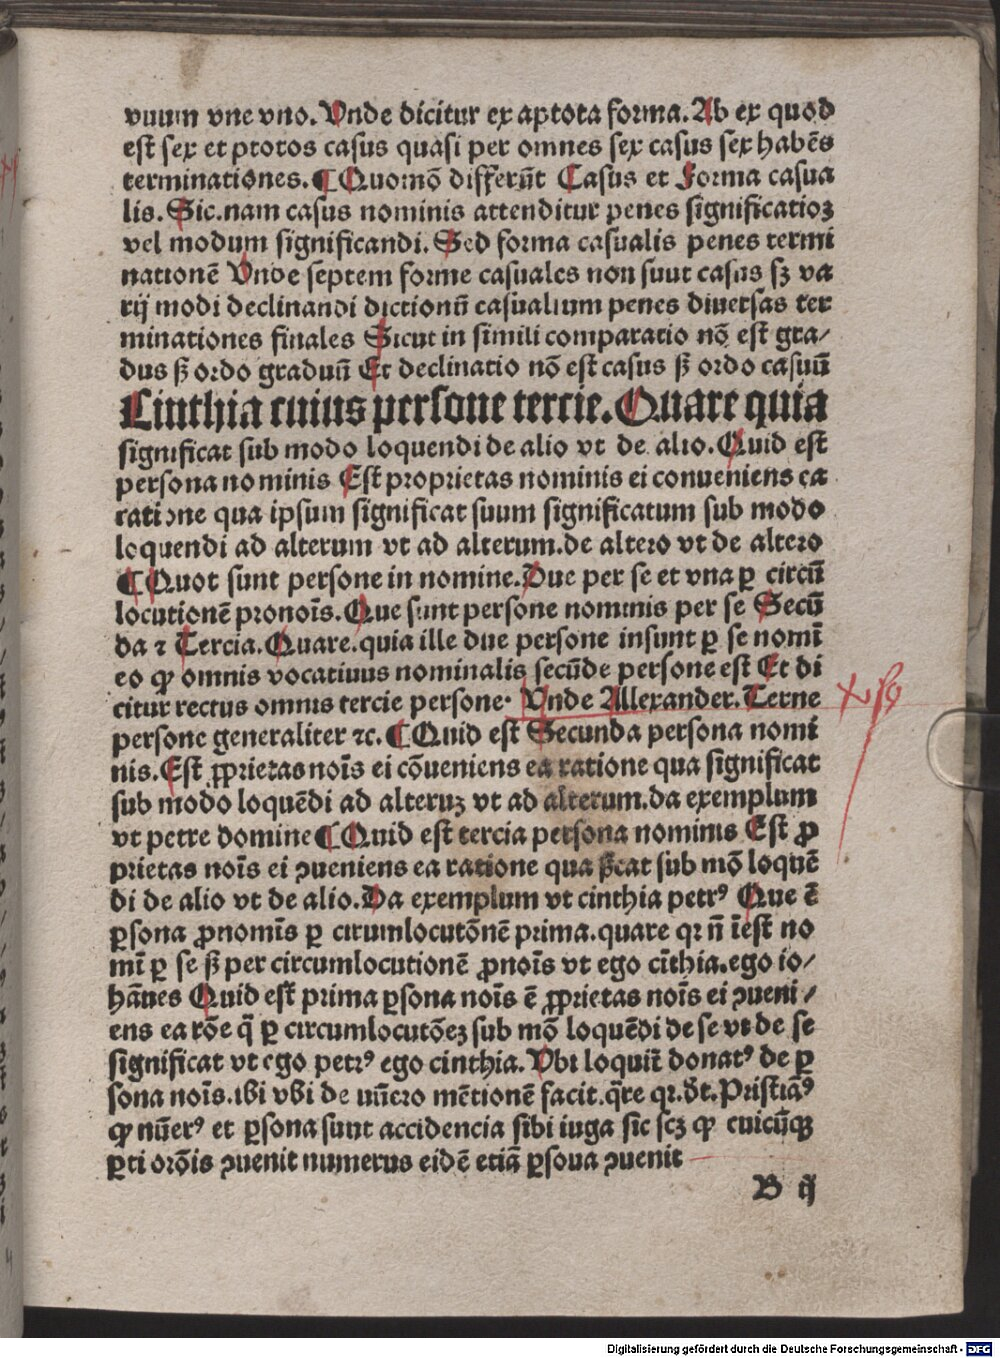 vuum vne vno. Vnde dicitur ex aptota forma. Ab ex quod
est sex et ptotos casus quasi per omnes sex casus sex habẽs
terminationes. ¶ Quomõ differũt Casus et Forma casua
lis. Sic. nam casus nominis attenditur penes significatioꝫ
vel modum significandi. Sed forma casualis penes termi
nationẽ Vnde septem forme casuales non suut casus sꝫ va
rij modi declinandi dictionũ casualium penes diuersas ter
minationes finales Sicut in simili comparatio nõ est gra/
dus ß ordo graduũ Et declinatio nõ est casus ß ordo casuũ
Cinthia cuius persone tercie. Quare quia
significat sub modo loquendi de alio vt de alio. Quid est
persona nominis Est proprietas nominis ei conueniens ea
ratione qua ipsum significat suum significatum sub modo
loquendi ad alterum vt ad alterum. de altero vt de altero
¶ Quot sunt persone in nomine. Due per se et vna ꝑ circũ
locutionẽ pronoĩs. Que sunt persone nominis per se Secũ
da ⁊ Tercia. Quare. quia ille due persone insunt ꝑ se nomĩ
eo ꝙ omnis vocatiuus nominalis secũde persone est Et di
citur rectus omnis tercie persone· Vnde Allexander. Terne
persone generaliter ⁊c. ¶ Quid est Secunda persona nomi
nis. Est ꝓprietas noĩs ei cõueniens ea ratione qua significat
sub modo loquẽdi ad alteruꝫ vt ad alterum. da exemplum
vt petre domine ¶ Quid est tercia persona nominis Est ꝓ
prietas noĩs ei ꝯueniens ea ratione qua ßcat sub mõ loquẽ
di de alio vt de alio. Da exemplum vt cinthia petrꝰ Que ẽ
ꝑsona ꝓnomĩs ꝑ cirumlocutõnẽ prima. quare qꝛ ñ ĩest no
mĩ ꝑ se ß per circumlocutionẽ ꝓnoĩs vt ego cĩthia. ego io/
hãues Quid est prima ꝑsona noĩs ẽ ꝓprietas noĩs ei ꝯueni/
ens ea rõe q̃ ꝑ circumlocutõeꝫ sub mõ loquẽdi de se vt de se
significat vt ego petrꝰ ego cinthia. Vbi loquit̃ donatꝰ de ꝑ
sona noĩs. ibi vbi de nũero mẽtionẽ facit. q̃re qꝛ. ðt. Pristiãꝰ
ꝙ nũerꝰ et ꝑsona sunt accidencia sibi iuga sic scꝫ ꝙ cuicũqꝫ
ꝑti orõis ꝯuenit numerus eidẽ etiã ꝑsoua ꝯuenit
B ij
Digitalisierung gefördert durch die Deutsche Forschungsgemeinschaft - DFG